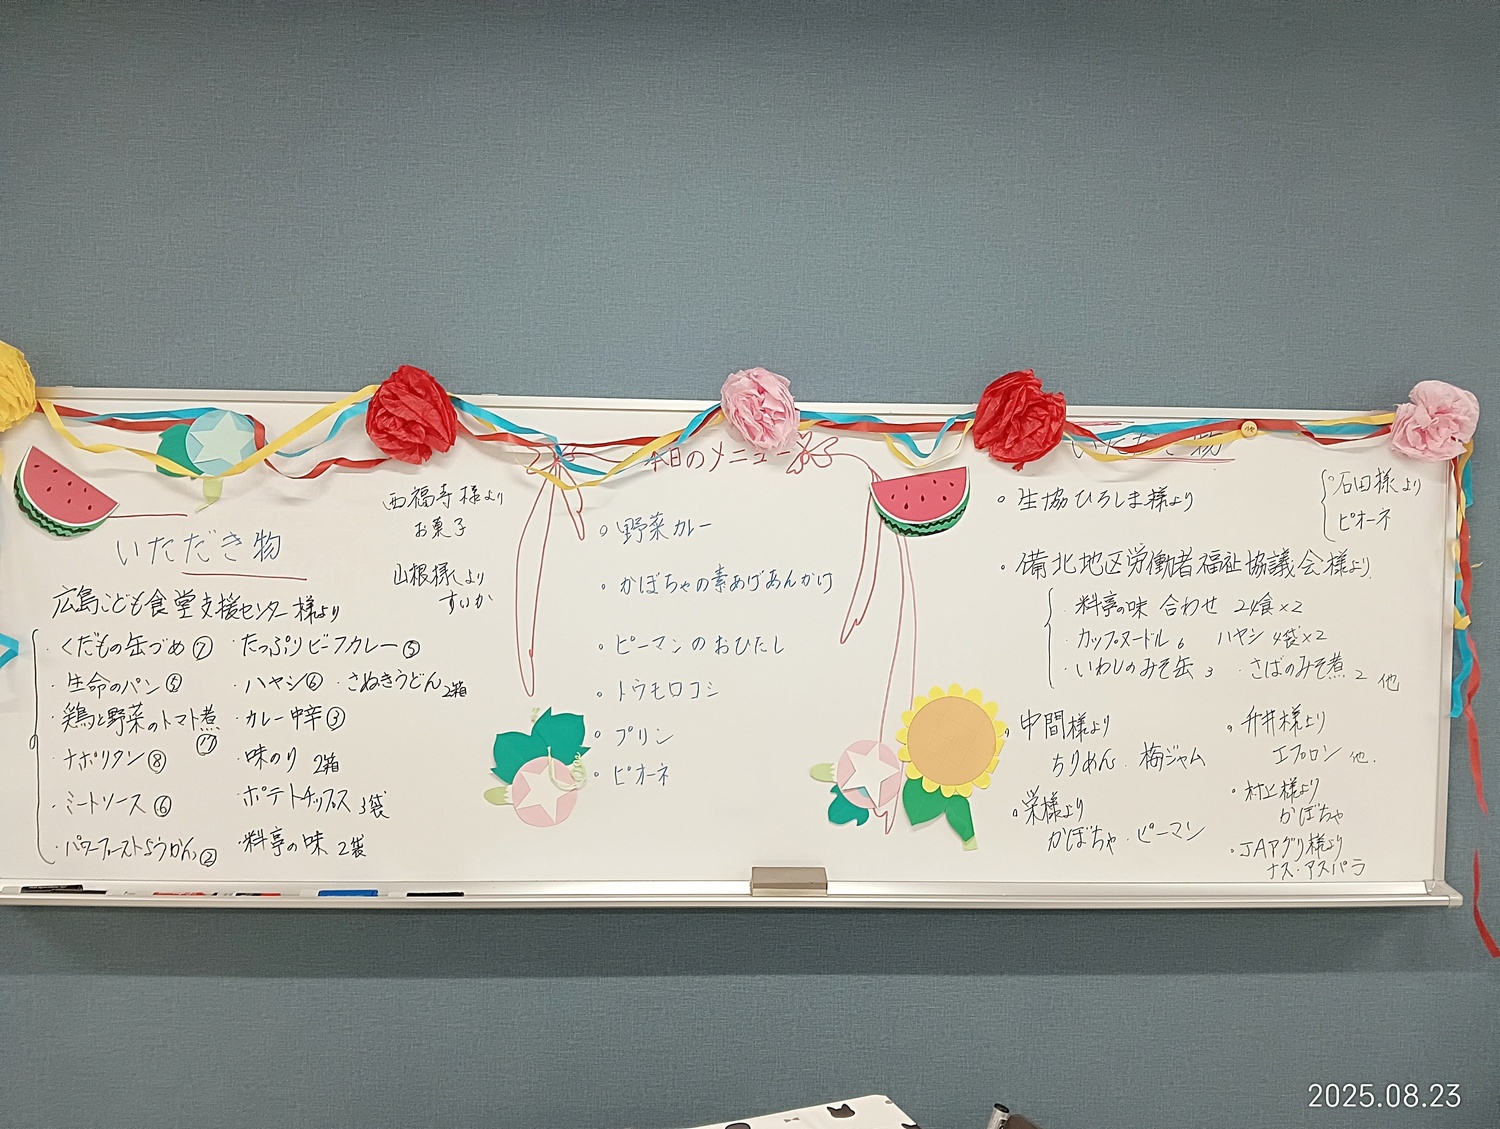 いただき物
広島こども食堂支援センター様より
・くだもの缶づめ⑦
・生命のパン⑤
・鶏と野菜のトマト煮
⑦
・ナポリタン⑧
・ミートソース⑥
・パワーフーストようかん②
・たっぷりビーフカレー⑤
・ハヤシ⑥ ・さぬきうどん2箱
・カレー中辛③
・味のり 2箱
・ポテトチップス 3袋
・料亭の味 2袋
西福寺様より
お菓子
山根様より
すいか
本日のメニュー
○野菜カレー
○かぼちゃの素あげあんかけ
○ピーマンのおひたし
○トウモロコシ
○プリン
○ピオーネ
いただき物
○生協ひろしま様より
○備北地区労働者福祉協議会様より
・料亭の味 合わせ 24食×2
・カップヌードル 6 ハヤシ 4袋×2
・いわしのみそ缶 3 ・さばのみそ煮 2 他
○中間様より
ちりめん・梅ジャム
○栄様より
かぼちゃ・ピーマン
○石田様より
ピオーネ
○升井様より
エプロン 他.
○村上様より
かぼちゃ
○JAアグリ様より
ナス・アスパラ
2025.08.23